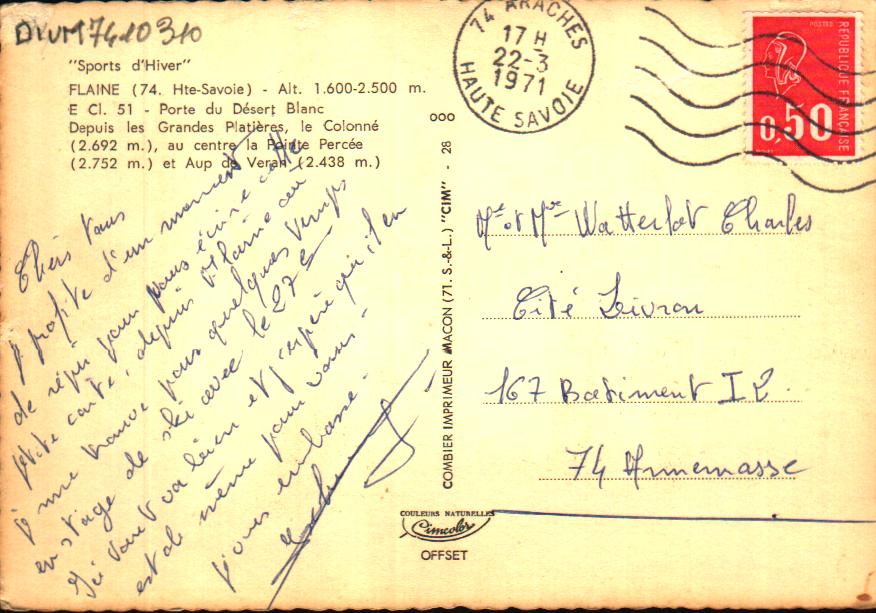 DIVM7410310
"Sports d'Hiver"
FLAINE (74. Hte-Savoie) - Alt. 1.600-2.500 m.
E Cl. 51 - Porte du Désert Blanc
Depuis les Grandes Platières, le Colonné
(2.692 m.), au centre la Pointe Percée
(2.752 m.) et Aup de Veran (2.438 m.)
Chers tous
je profite d'un moment
de répit pour vous écrire cette
petite carte, depuis Flaine où
je me trouve pour quelques temps
en stage de ski avec le 27e
Ici tout va bien et j'espère qu'il en
est de même pour vous.
je vous embrasse.
74 ARACHES
17 H
22-3
1971
HAUTE SAVOIE
POSTES
REPUBLIQUE FRANÇAISE
0,50
COMBIER IMPRIMEUR MACON (71. S.-&-L.) "CIM" - 28
Mr et Mme Watterlot Charles
Cité Livron
167 Batiment I2.
74 Annemasse
COULEURS NATURELLES
Cimcolor
OFFSET